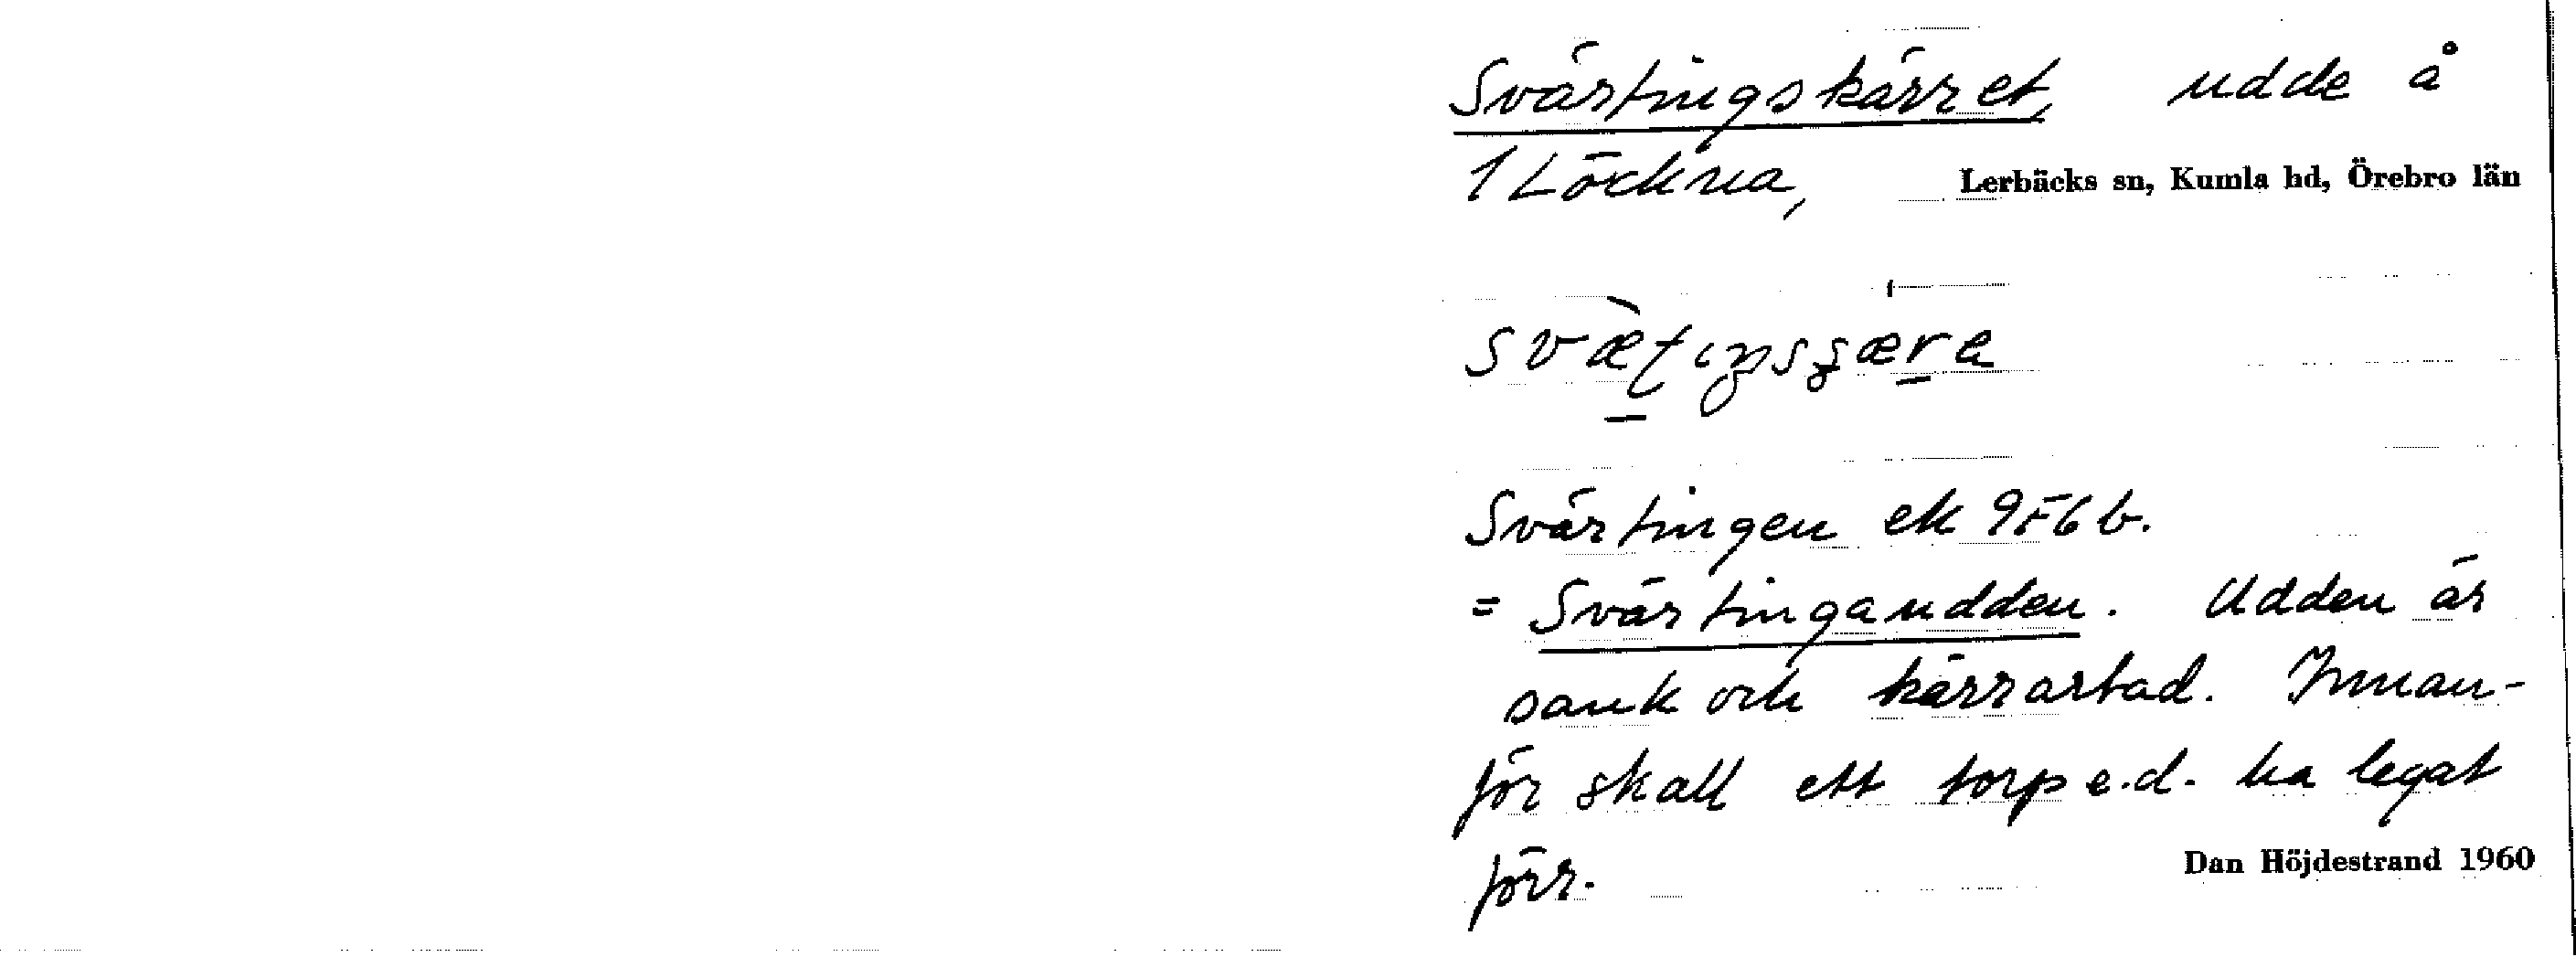 Svärtingskärret, udde å
1 Löckna, Lerbäcks sn, Kumla hd, Örebro län
Svärtingen ek 9F6b.
= Svärtingaudden. Udden är
sank och kärrartad. Innan-
för skall ett torp e.d. ha legat
förr.
Dan Höjdestrand 1960